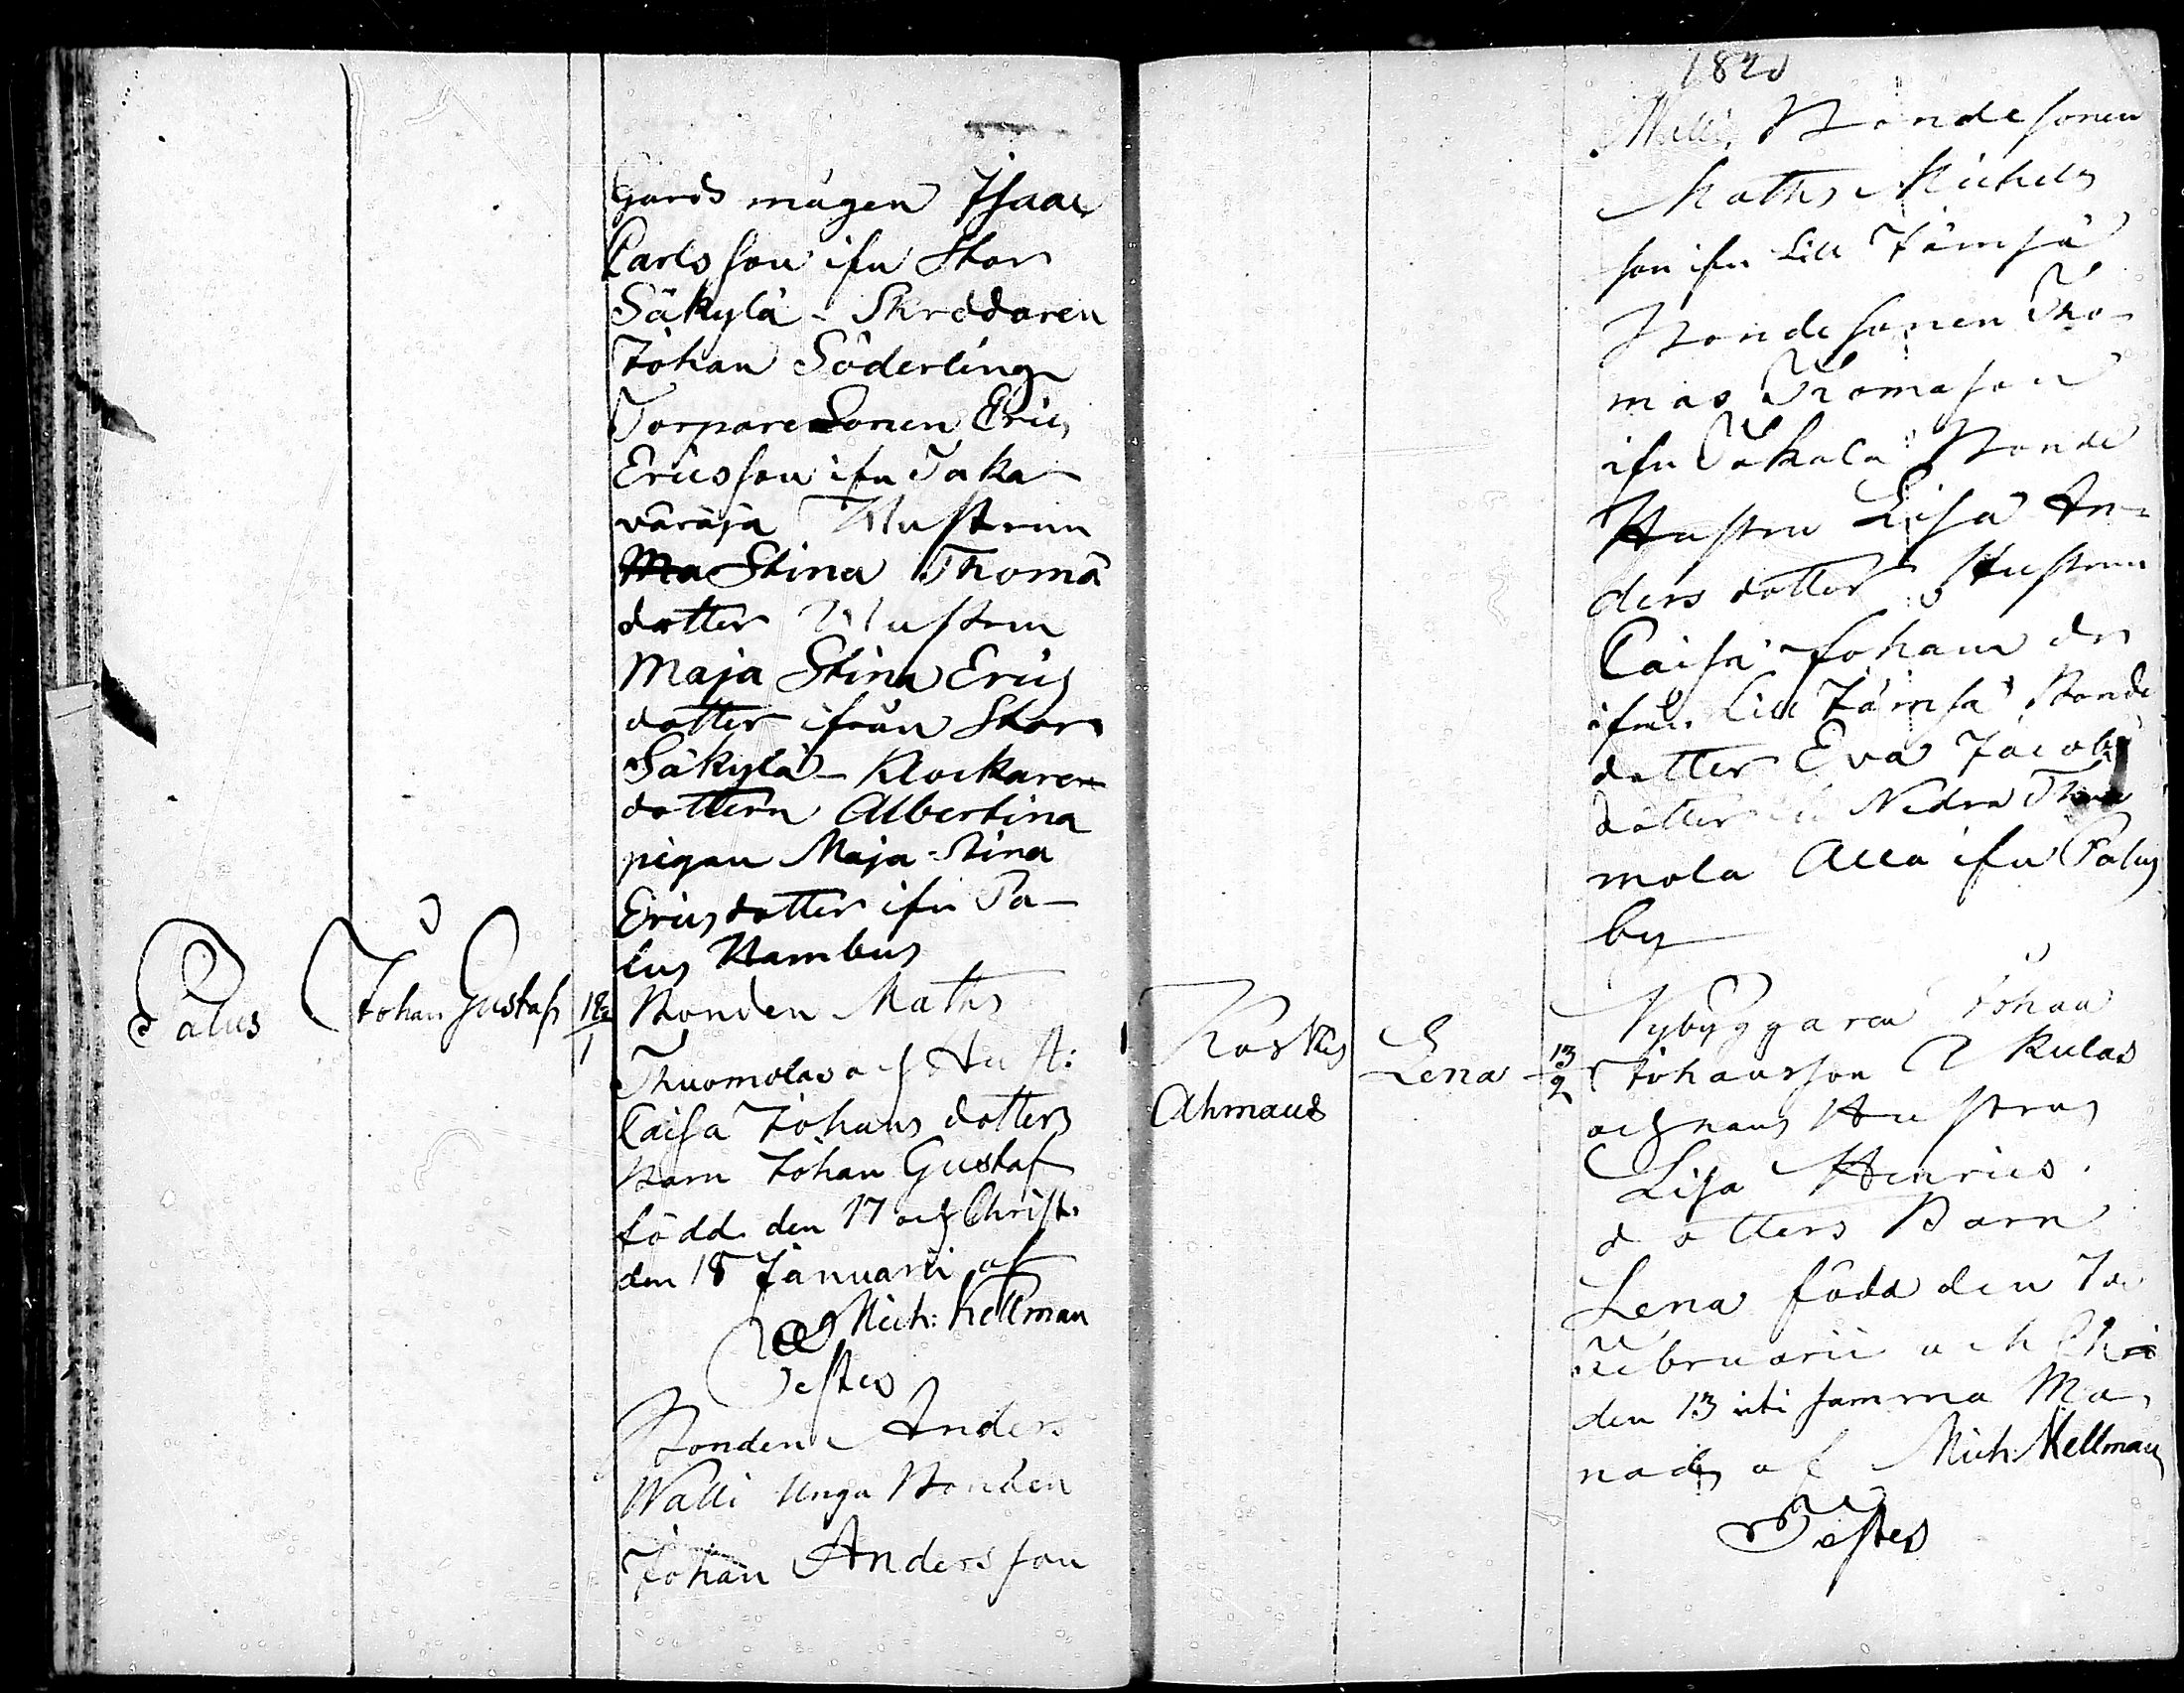 Gårds mågen Isaac
Carlsson ifrn Stor
Säkylä - Skreddaren
Johan Söderling
Torpare Sonen Erics
Ericsson ifrn Taka
väräjä Hustrun
Ma Stina Thomä
dotter Hustrun
Maja Stina Erics
dotter ifrån Stor
Säkylä - Klockaren
dottern Albertina
pigan Maja Stina
Ericsdotter ifrn Pa-
lus Kambus
Palus Johan Gustaf 18/1 Bonden Maths
Thuomolas och Hust:
Caisa Johans dotters
Barn Johan Gustaf
född den 17 och Christ.
den 18 Januarii af
Mich: Hellman
Testes
Bonden Anders
Walli Unga Bonden
Johan Andersson
1820
Walli, Bondesonen
Maths Michels
son ifrn Lill Jämsä
Bondesonen Tho-
mas Thomason
ifrn Bonde
Hustru Lisa An-
ders dotter Hustrun
Caisa Johans dr
ifrån Lill Jämsä Bonde
dotter Eva Jacobs
dotter Nedra
mola Alla ifrn Palus
by
Koskis Lena 13/2 Nybyggaren Johan
Ahmaus Johansson Akulas
och hans Hustrus
Lisa Henrics
dotters Barn
Lena född den
Februarii och Chr
den 13 uti samma Må-
nads af Mich: Hellman
Testes